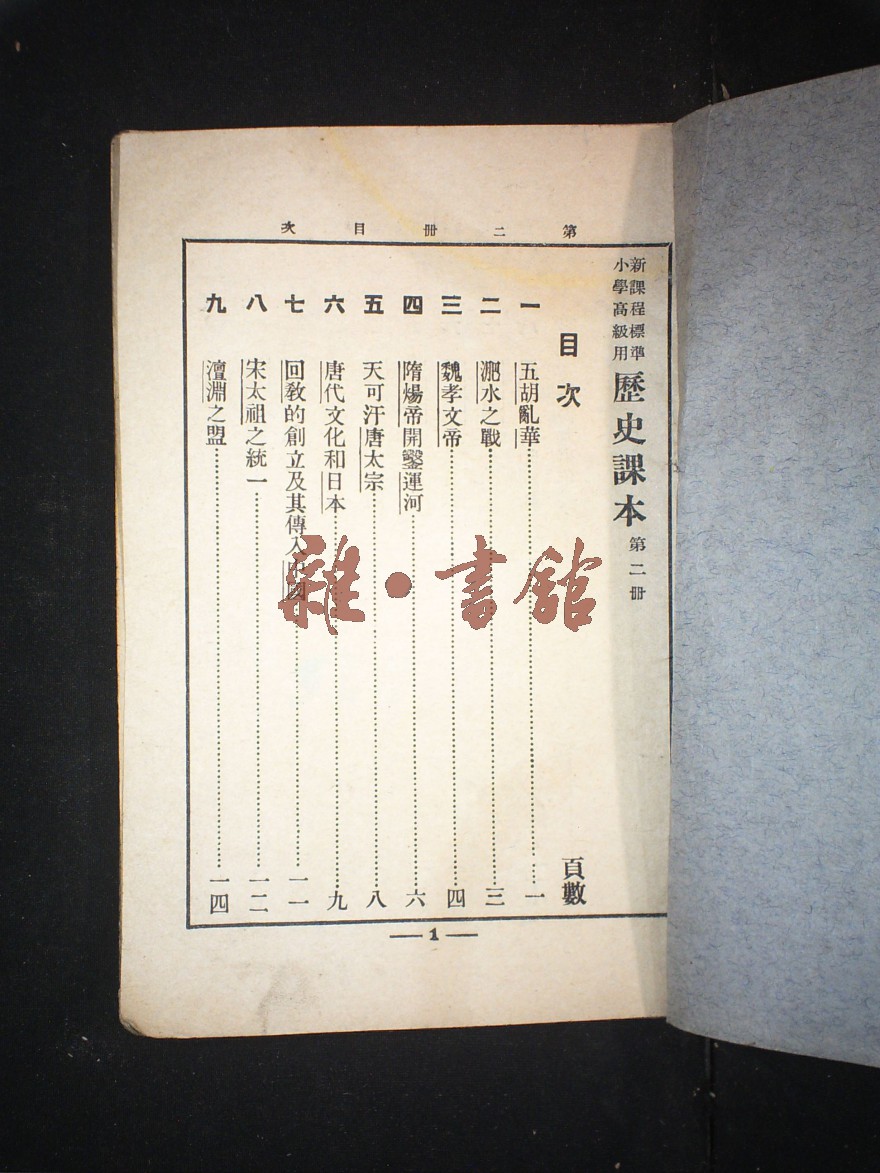 第二冊目次
新課程標準
小學高級用
歷史課本 第二冊
目次 頁數
一 五胡亂華……一
二 淝水之戰……三
三 魏孝文帝……四
四 隋煬帝開鑿運河……六
五 天可汗唐太宗……八
六 唐代文化和日本……九
七 回教的創立及其傳入中國……一一
八 宋太祖之統一……一二
九 澶淵之盟……一四
— 1 —
雜·書館